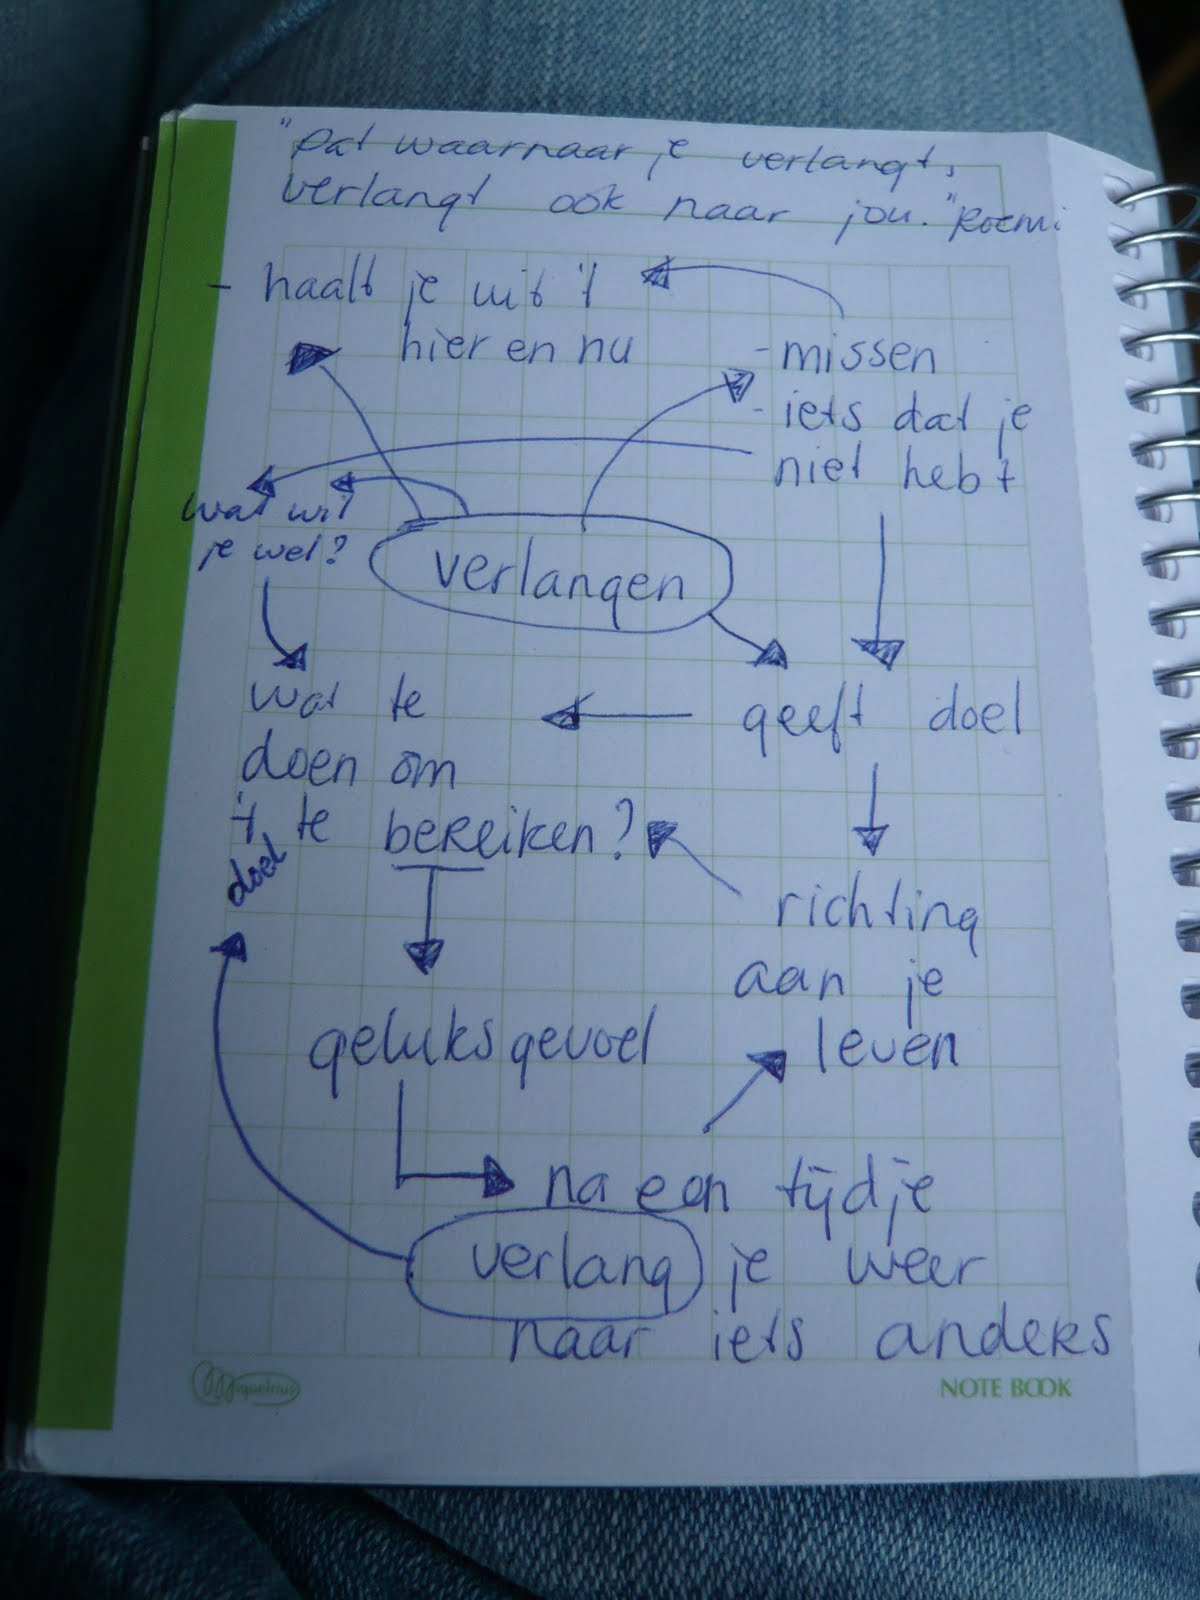 "Dat waarnaar je verlangt,
verlangt ook naar jou." Roemi
- haalt je uit 't
hier en nu
- missen
- iets dat je
niet hebt
wat wil
je wel?
verlangen
wat te
doen om
't te bereiken?
doel
geeft doel
richting
aan je
leven
geluksgevoel
na een tijdje
verlang je weer
naar iets anders
NOTE BOOK